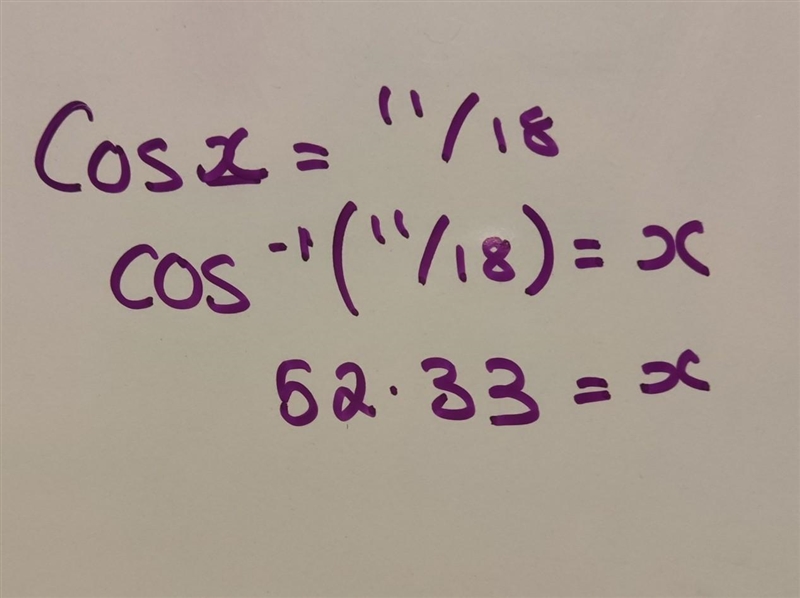 Cos x = 11/18
cos⁻¹(11/18) = x
52.33 = x